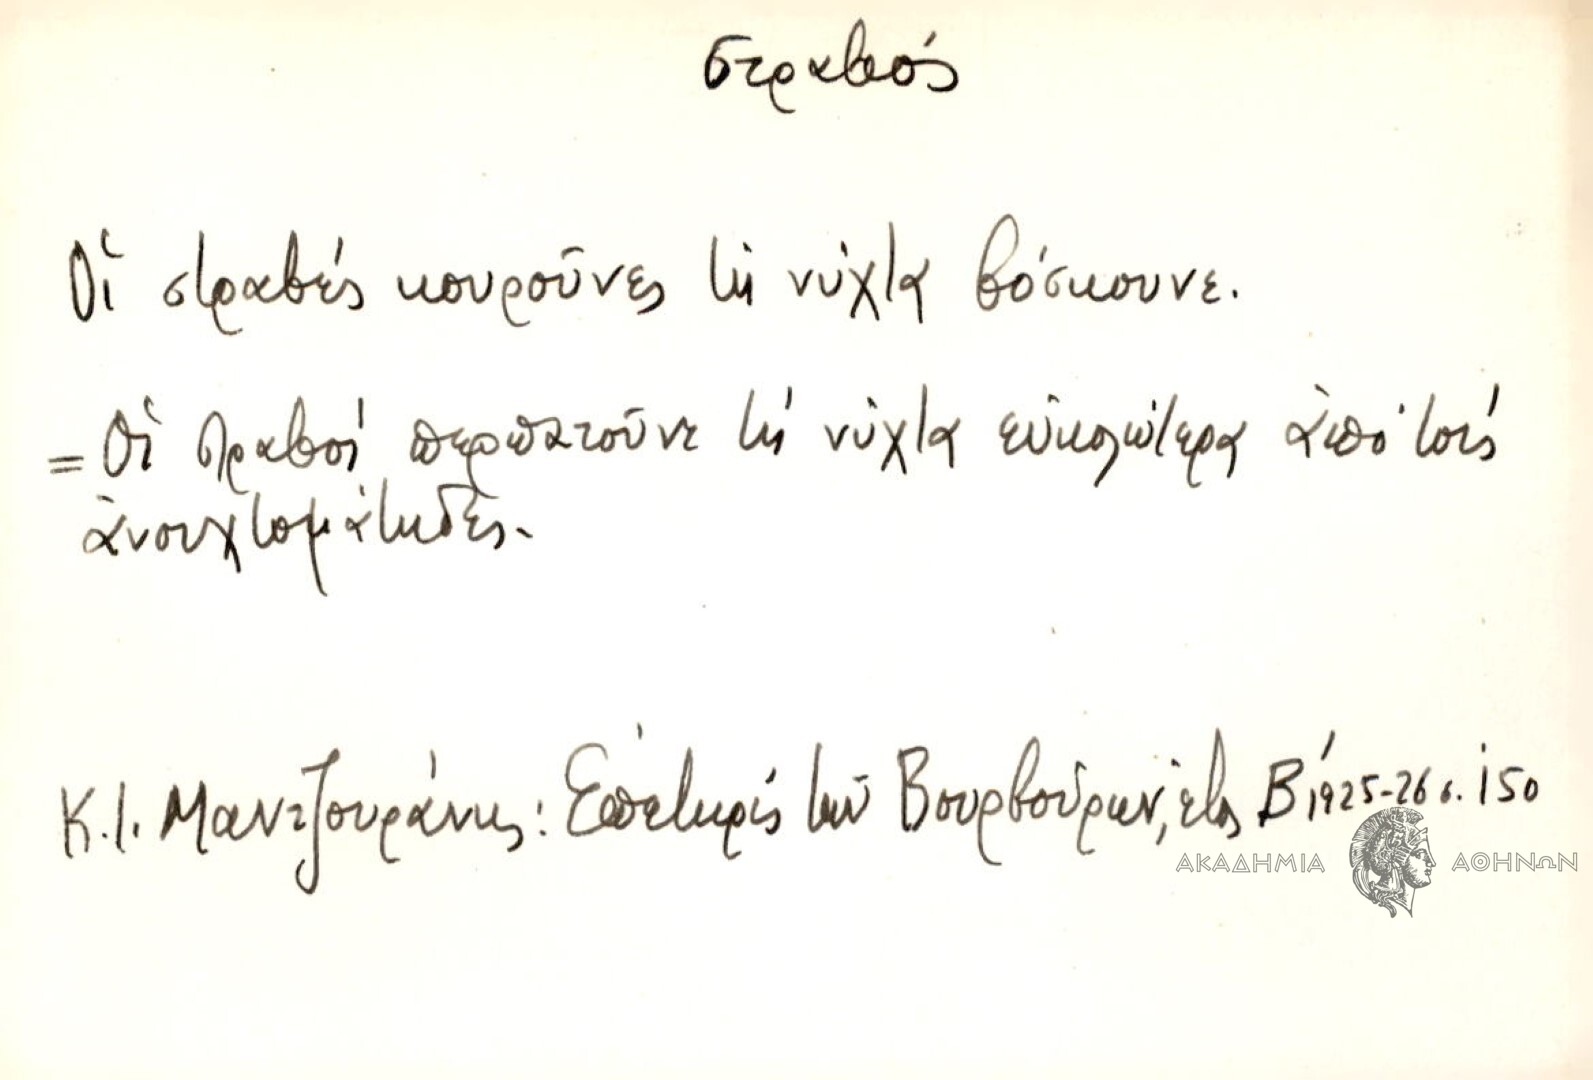 στραβός
Οἱ στραβές κουροῦνες τή νύχτα βόσκουνε.
= Οἱ στραβοί περπατοῦνε τή νύχτα εὐκολώτερα ἀπό τούς
ἀνοιχτομάτηδες.
Κ.Ι. Μαντζουράνης: Ἐπετηρίς τῶν Βουρβούρων, ἔτος Β΄, 1925-26 σ. 150
ΑΚΑΔΗΜΙΑ ΑΘΗΝΩΝ